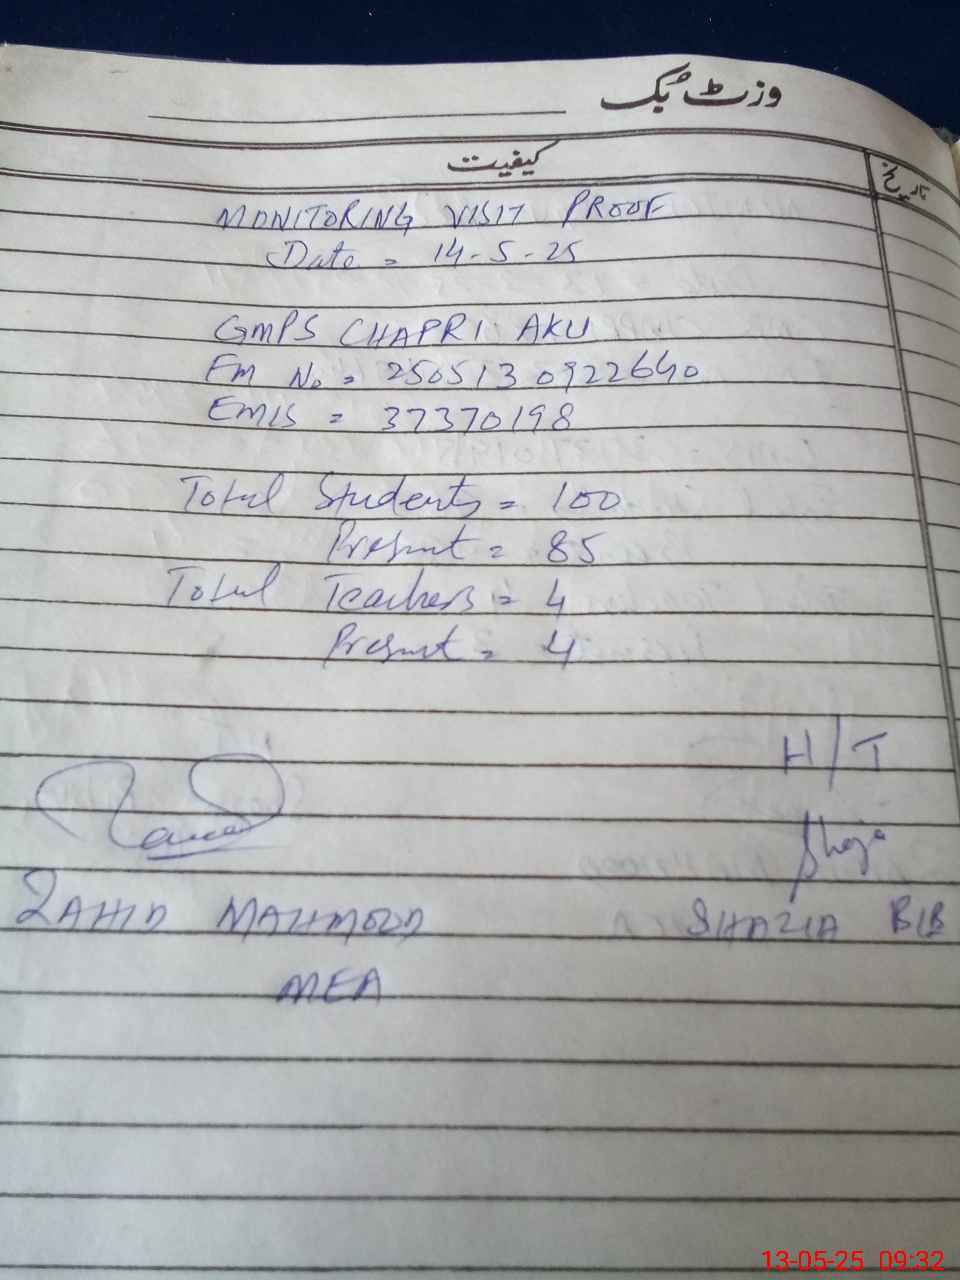 وزٹ بُک
کیفیت
تاریخ
MONITORING VISIT PROOF
Date = 14-5-25
GMPS CHAPRI AKU
Fm No = 2505130922640
EMIS = 37370198
Total Students = 100
Present = 85
Total Teachers = 4
Present = 4
H/T
ZAHID MAHMOOD
SHAZIA BIB
MEA
13-05-25 09:32